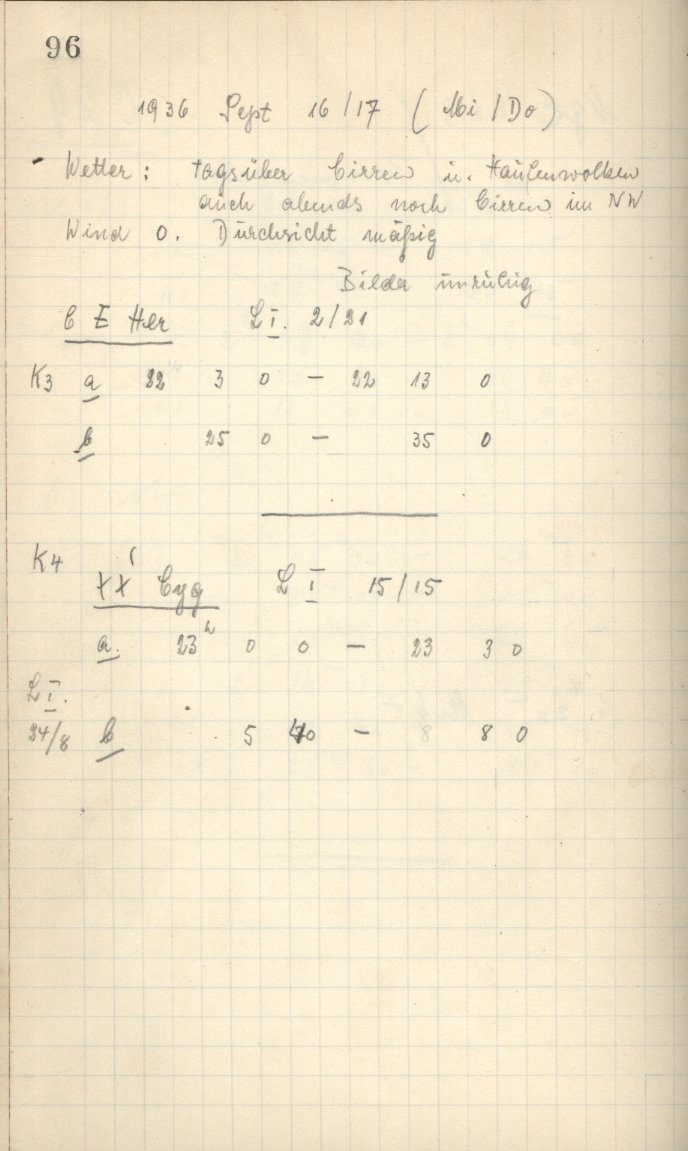 96
1936 Sept 16/17 (Mi/Do)
Wetter: tagsüber Cirren u. Haufenwolken
auch abends noch Cirren im NW
Wind 0. Durchsicht mäßig
Bilder unruhig
C E Her LI. 2/21
K3 a 22 3 0 — 22 13 0
b 25 0 — 35 0
K4
XX Cyg LI 15/15
a. 23h 0 0 — 23 3 0
LI.
24/8 b 5 — 8 0